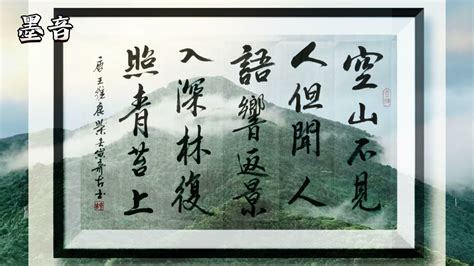 墨音
空山不見
人但聞人
語響返景
入深林復
照青苔上
唐王維鹿柴壬寅